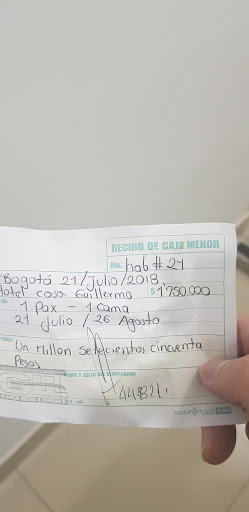 RECIBO DE CAJA MENOR
No. hab # 21
Bogotá 21/Julio/2018
Hotel casa Guillermo $1'750.000
1 Pax - 1 cama
21 Julio / 26 Agosto
Un Millon Setecientos cincuenta
Pesos